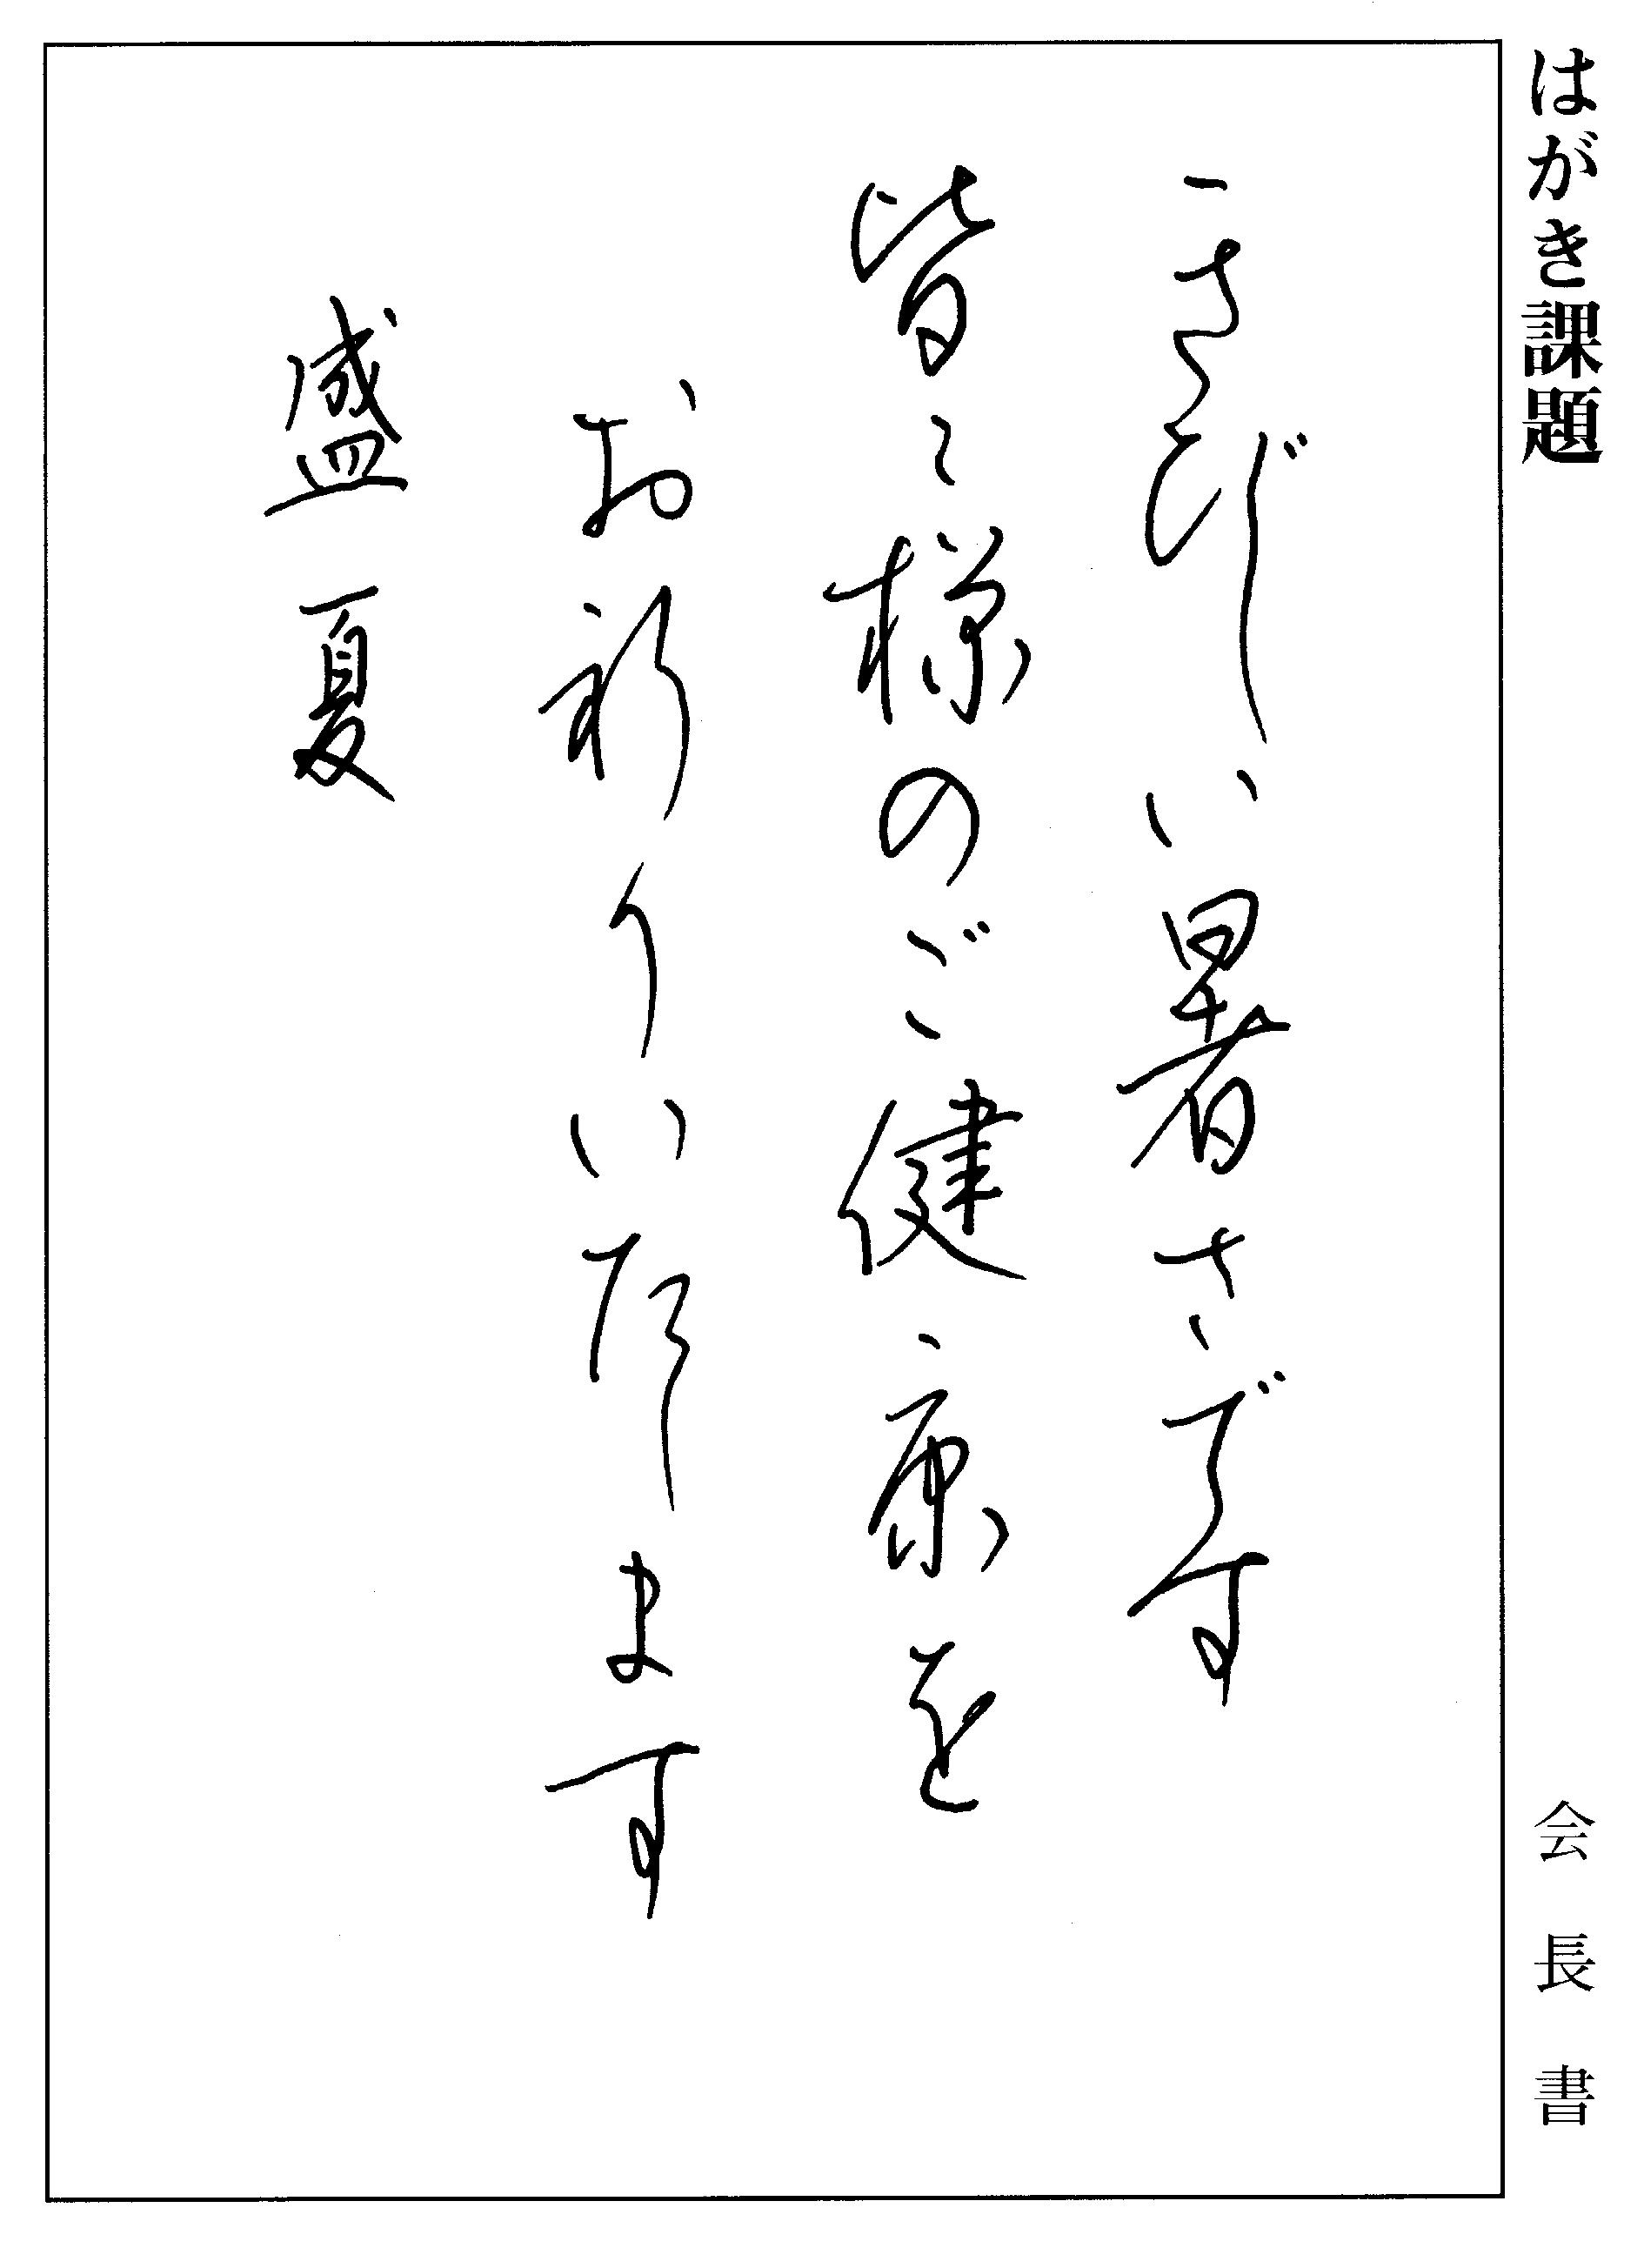 はがき課題
会長書
きびしい暑さです
皆々様のご健康を
お祈りいたします
盛夏